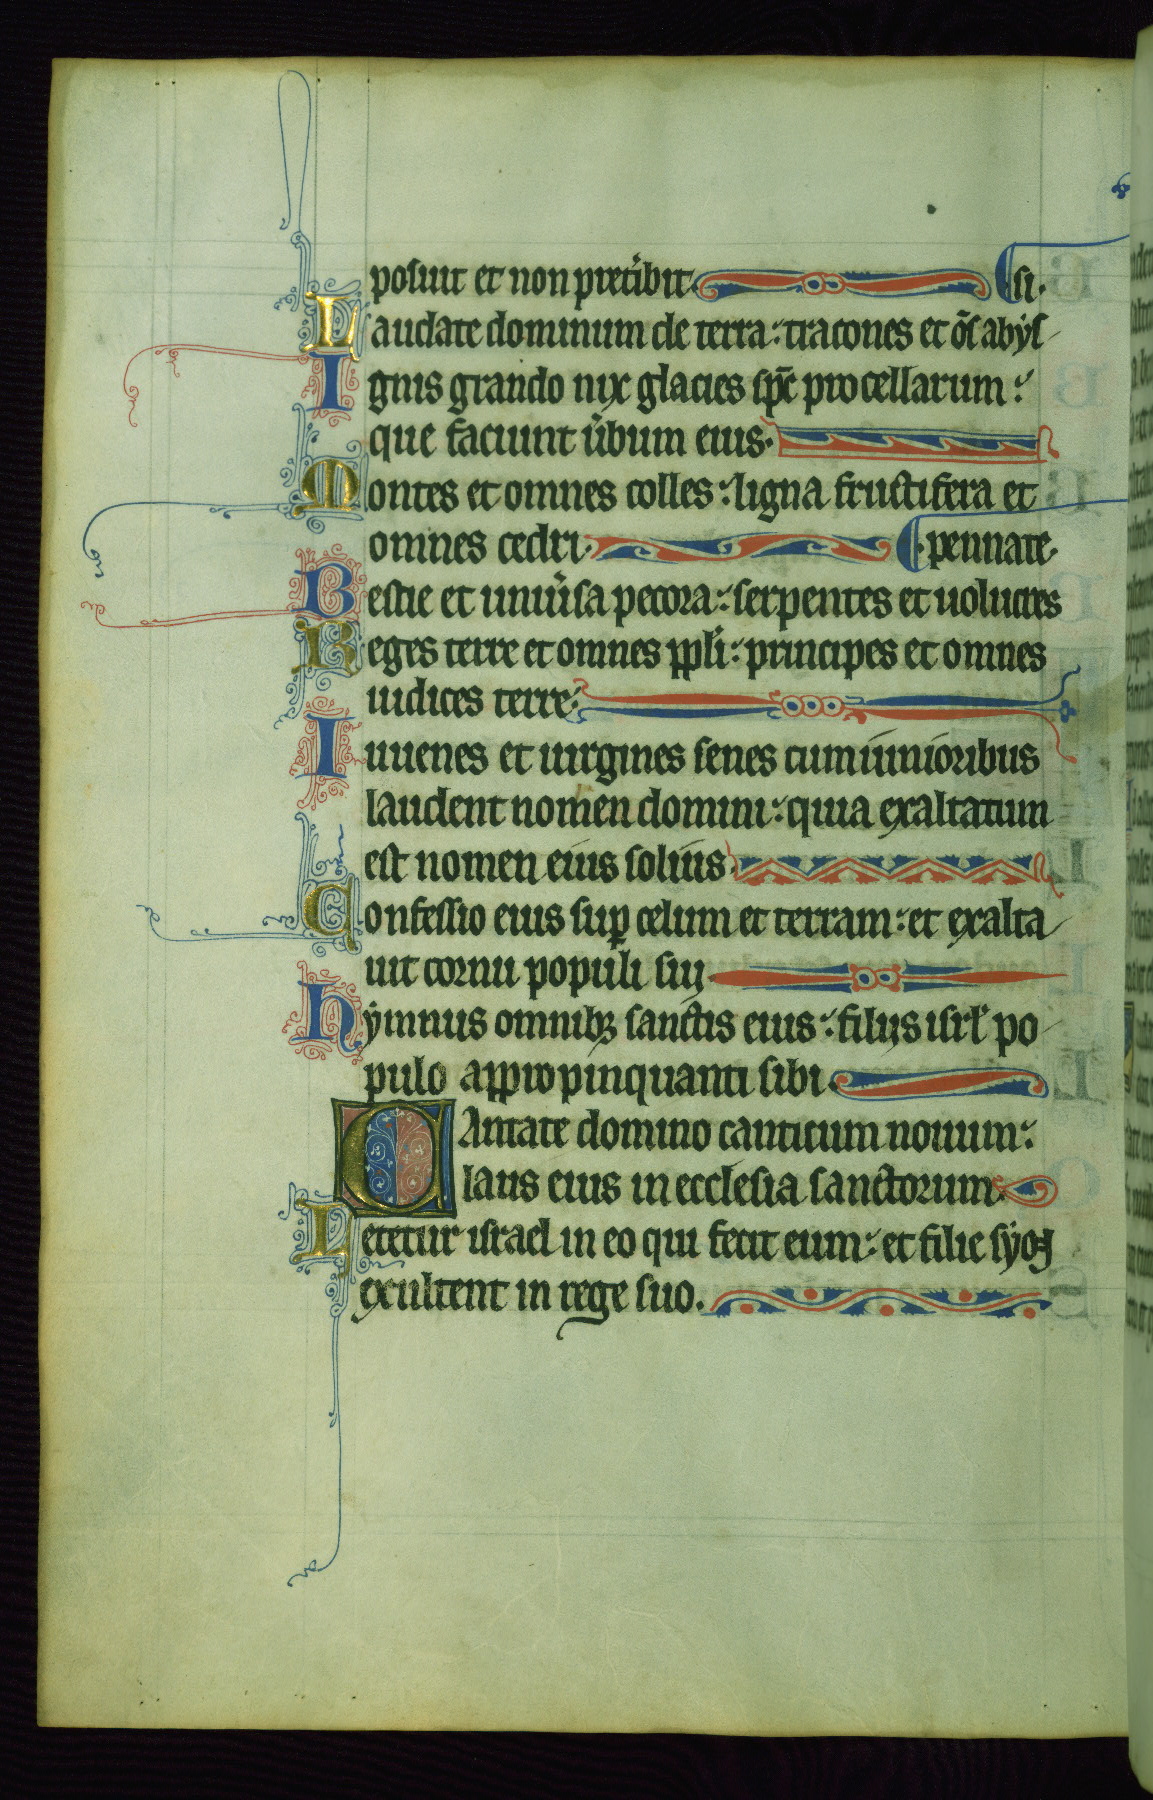 posuit et non pretͥibit. si.
Laudate dominum de terra: tracones et om̅s abyſ
Ignis grando nix glacies sp̅c procellarum:
que faciunt uͥbum eius.
Montes et omnes colles: ligna fructifera et
omnes cedri. pennate.
Bestie et uniuͥsa pecora: serpentes et uolucres
Reges terre et omnes ppl̅i: principes et omnes
iudices terre.
Iuuenes et uirgines senes cum iunioribus
laudent nomen domini: quia exaltatum
est nomen eius solius.
Confessio eius suꝑ celum et terram: et exalta
uit cornu populi sui
Hymnus omnibꝫ sanctis eius: filiis isrl̅ po
pulo appropinquanti sibi.
CAntate domino canticum nouum:
laus eius in ecclesia sanctorum.
Letetur israel in eo qui fecit eum: et filie syoꝫ
exultent in rege suo.